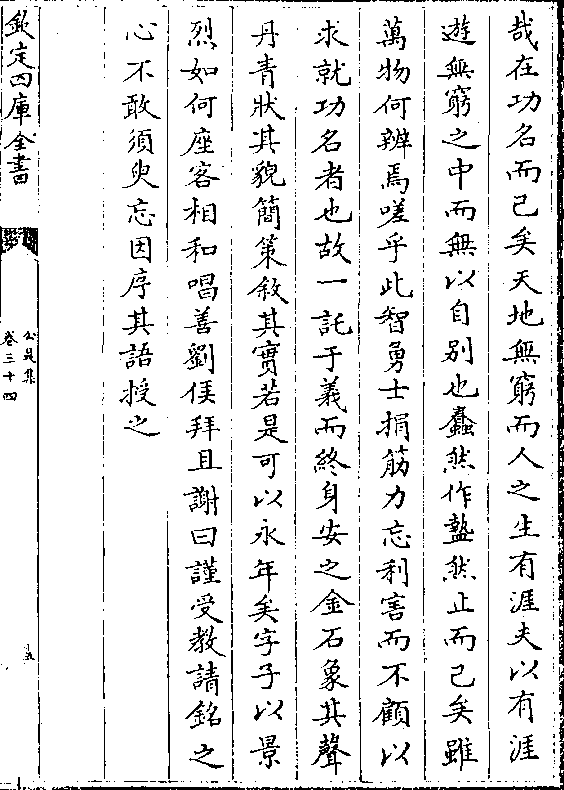 哉在功名而已矣天地無窮而人之生有涯夫以有涯
遊無窮之中而無以自别也蠢然作蟄然止而已矣雖
萬物何辨焉嗟乎此智勇士捐筋力忘利害而不顧以
求就功名者也故一託于義而終身安之金石象其聲
丹青狀其貌簡策敘其實若是可以永年矣字子以景
烈如何座客相和唱善劉侯拜且謝曰謹受教請銘之
心不敢須臾忘因序其語授之
欽定四庫全書
公是集
卷三十四
十五